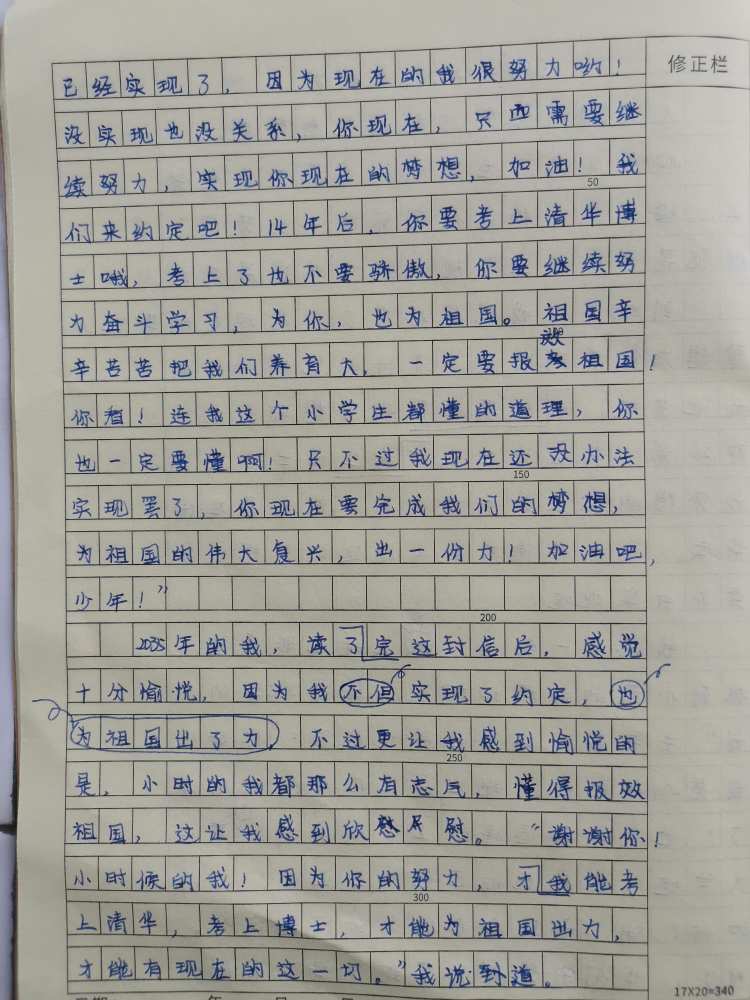 已经实现了，因为现在的我很努力哟！
修正栏
没实现也没关系，你现在，只需要继
续努力，实现你现在的梦想，加油！我
50
们来约定吧！14年后，你要考上清华博
士哦，考上了也不要骄傲，你要继续努
力奋斗学习，为你，也为祖国。祖国辛
辛苦苦把我们养育大，一定要报效祖国！
你看！连我这个小学生都懂的道理，你
也一定要懂啊！只不过我现在还没办法
150
实现罢了，你现在要完成我们的梦想，
为祖国的伟大复兴，出一份力！加油吧，
少年！”
200
2035年的我，读了完这封信后，感觉
十分愉悦，因为我不但实现了约定，也
为祖国出了力，不过更让我感到愉悦的
250
是，小时的我都那么有志气，懂得报效
祖国，这让我感到欣慰。“谢谢你！
小时候的我！因为你的努力，才我能考
300
上清华，考上博士，才能为祖国出力，
才能有现在的这一切。”我说到道。
17X20=340